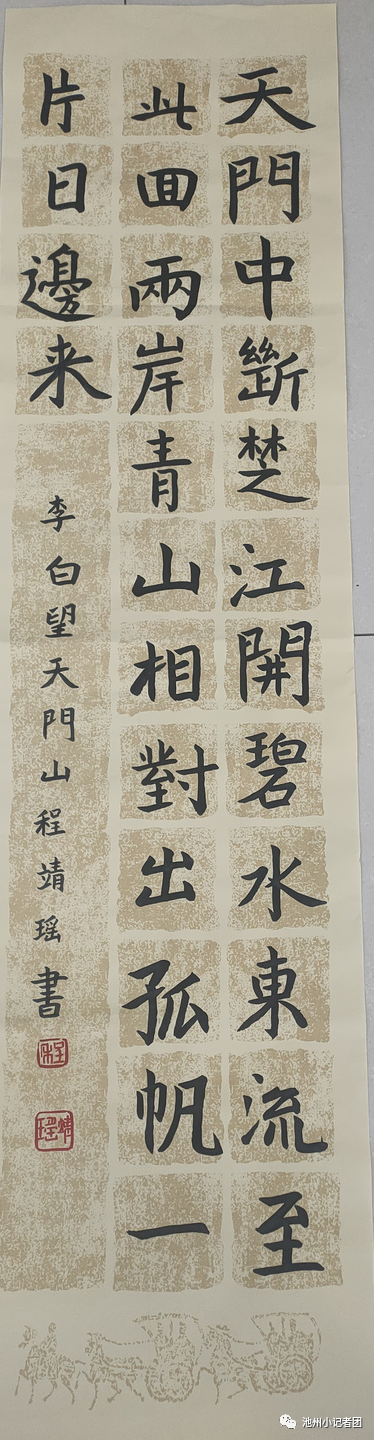 天門中斷楚江開碧水東流至
此回兩岸青山相對出孤帆一
片日邊来
李白望天門山程靖瑶書
程
靖瑶
池州小记者团